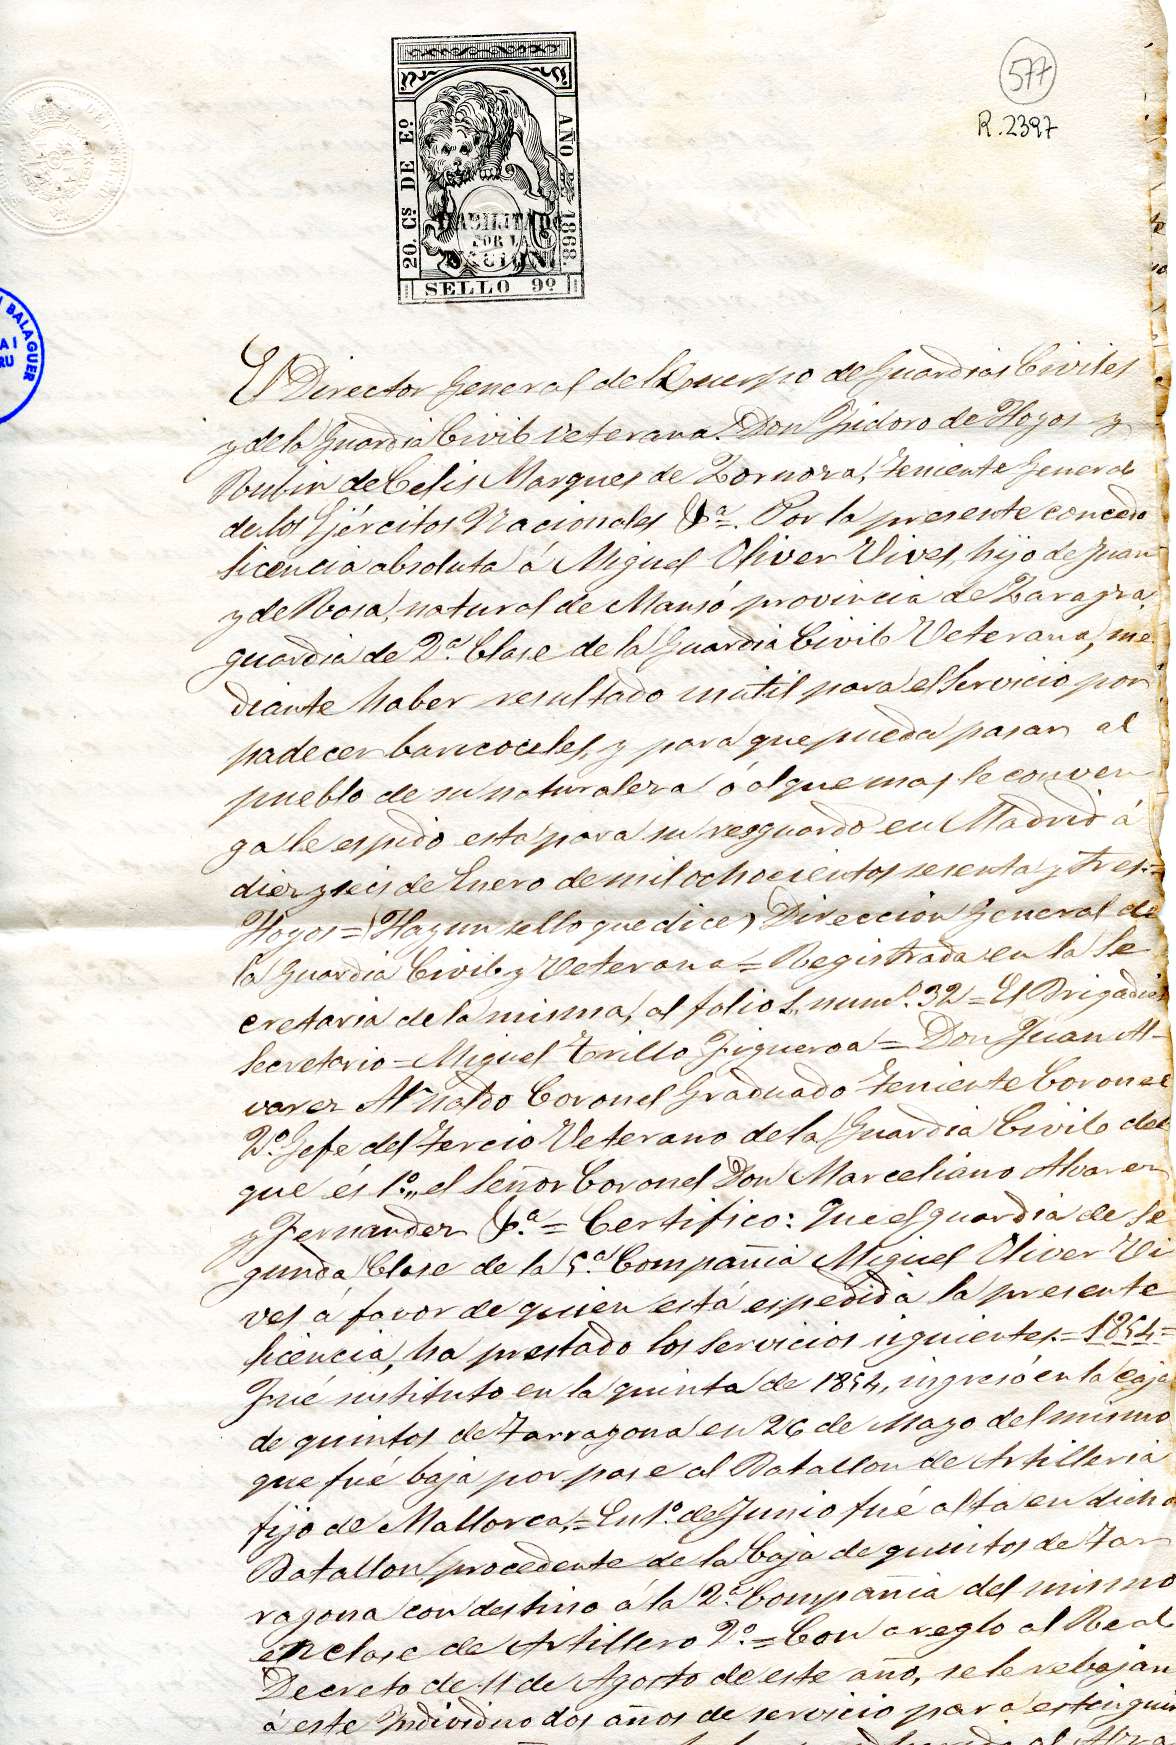 577
R. 2397
20. Cs DE Eo
AÑO DE 1868.
HABILITADO
POR LA
NACION
SELLO 9º
BALAGUER
El Director General del Cuerpo de Guardias Civiles
y de la Guardia Civil Veterana. Don Ysidoro de Hoyos y
Rubin de Celis Marques de Zornoza, teniente General
de los Ejércitos Nacionales &ª = Por la presente concedo
licencia absoluta á Miguel Oliver Vives, hijo de Juan
y de Rosa, natural de Mansó provincia de Zaragoza,
guardia de 2ª Clase de la Guardia Civil Veterana, me
diante haber resultado inutil para el Servicio por
padecer baricoceles, y para que pueda pasar al
pueblo de su naturaleza ó al que mas le conven
ga le espido esta para su resguardo en Madrid á
diez y seis de Enero de mil ochocientos sesenta y tres.=
Hoyos = (Hay un sello que dice) Direccion General de
la Guardia Civil y Veterana = Registrada en la Se
cretaria de la misma, al folio 1, num.º 32 = El Brigadier
Secretario = Miguel Trillo Figueroa = Don Juan Al-
varez Arnaldo Coronel Graduado teniente Coronel
2º Gefe del tercio Veterano de la Guardia Civil del
que és 1º,, el Señor Coronel Don Marceliano Alvarez
y Fernandez &.ª = Certifico: Que el guardia de Se
gunda Clase de la 5.ª Compañia Miguel Oliver Vi
ves á favor de quien está espedida la presente
licencia, ha prestado los Servicios siguientes.= 1854 =
Fué sustituto en la quinta de 1854, ingresó en la caja
de quintos de Tarragona en 26 de Mayo del mismo
que fué baja por pase al Batallon de Artilleria
fijo de Mallorca,= En 1º de Junio fué alta en dicho
Batallon procedente de la Caja de quintos de Tar
ragona con destino á la 2ª Compañia del mismo
en clase de Artillero 2º.= Con areglo al Real
Decreto de 11 de Agosto de este año, se le rebajan
á este Yndividuo dos años de servicio para estinguir